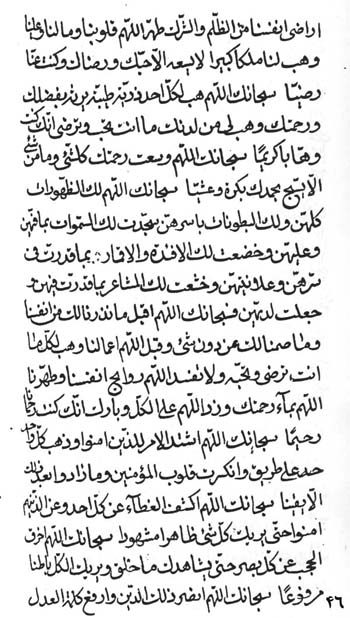 اراضی انفسنا من الظلم والشرك طهر اللهم قلوبنا وما لنا وعلينا
وهب لنا ملكا كبيرا لا يسعه الا حبك ورضاك وكنت عنا
رضيا سبحانك اللهم هب لكل احد ذرية طيبة برية بفضلك
ورحمتك وهب لى من لدنك ما انت تحب وترضى انك كنت
وهابا كريما سبحانك اللهم وسعت رحمتك كلشئ وما من شئ
الا يسبح بمجدك بكرة وعشيا سبحانك اللهم لك الظهورات
كلهن ولك البطونات باسرهن سجدت لك السموات بما فيهن
وعليهن وخضعت لك الافئدة والافكار بما قدرت فى
سرهن وعلانيتهن وخشعت لك المشاعر بما قدرت فيهن و
جعلت لديهن فسبحانك اللهم اقبل ما نذرنا لك من انفسنا
وما صمنا لك عن دون شئ وقبل اللهم اعمالنا وهب لكل ما
انت ترضى وتحبه ولا تفسد اللهم روايح انفسنا وطهرنا
اللهم بماء رحمتك وزد اللهم على الكل وبارك انك كنت رحمانا
رحيما سبحانك اللهم اشتد الامر للذين امنوا وذهب كل وا
حد على طريق وانكسرت قلوب المؤمنين وما زادوا بعد ذلك
الا يقينا سبحانك اللهم اكشف الغطاء عن كل احد وعن الذينهم
امنوا حتى يريك كل شئ ظاهرا مشهودا سبحانك اللهم اخرق
الحجب عن كل بصر حتى يشاهدك ما خلق ويريك الكل باطنا
مرفوعا سبحانك اللهم انصر ذلك الدين وارفع كلمة العدل
۴۶